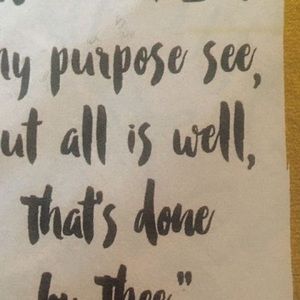 ny purpose see,
ut all is well,
that's done
by thee"